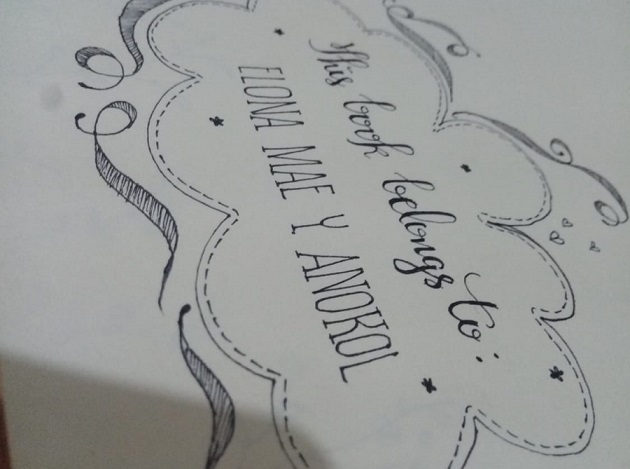 This book belongs to:
ELONA MAE Y ANOKOL